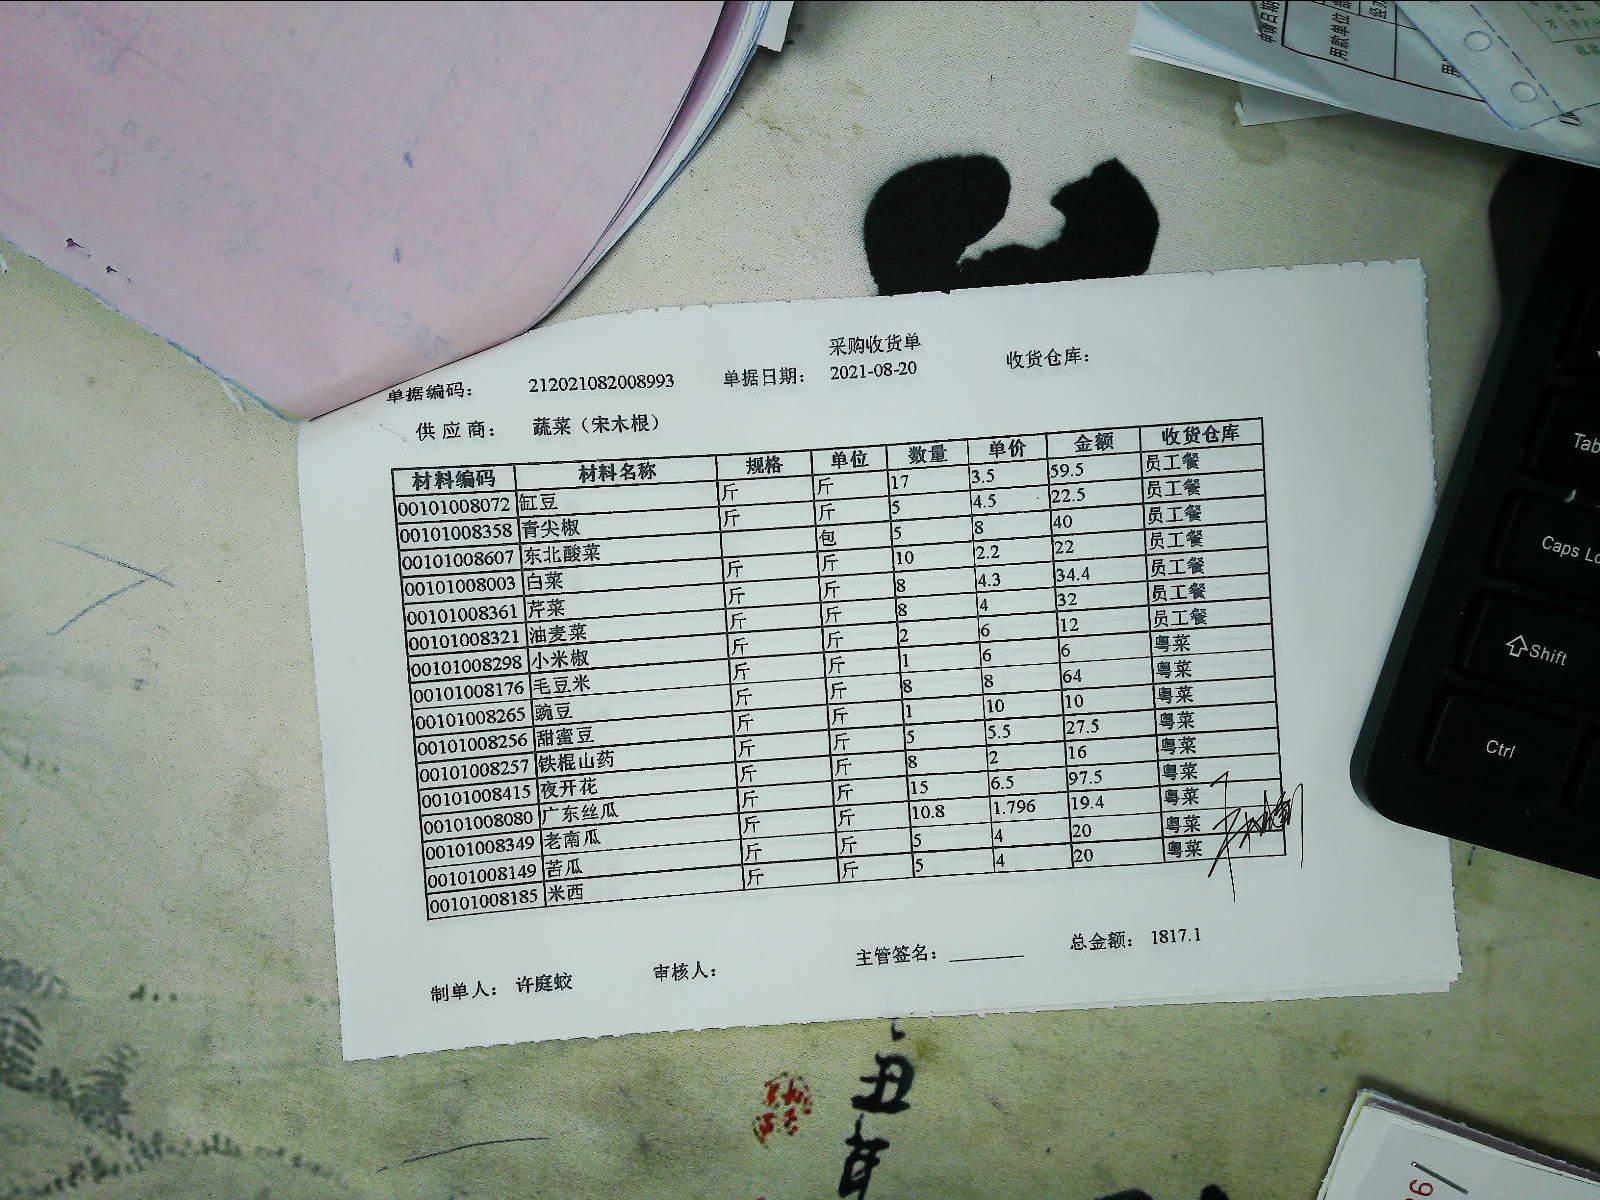 采购收货单
单据编码: 212021082008993 单据日期: 2021-08-20 收货仓库:
供应商: 蔬菜（宋木根）
材料编码 材料名称 规格 单位 数量 单价 金额 收货仓库
00101008072 缸豆 斤 斤 17 3.5 59.5 员工餐
00101008358 青尖椒 斤 斤 5 4.5 22.5 员工餐
00101008607 东北酸菜 包 5 8 40 员工餐
00101008003 白菜 斤 斤 10 2.2 22 员工餐
00101008361 芹菜 斤 斤 8 4.3 34.4 员工餐
00101008321 油麦菜 斤 斤 8 4 32 员工餐
00101008298 小米椒 斤 斤 2 6 12 员工餐
00101008176 毛豆米 斤 斤 1 6 6 粤菜
00101008265 豌豆 斤 斤 8 8 64 粤菜
00101008256 甜蜜豆 斤 斤 1 10 10 粤菜
00101008257 铁棍山药 斤 斤 5 5.5 27.5 粤菜
00101008415 夜开花 斤 斤 8 2 16 粤菜
00101008080 广东丝瓜 斤 斤 15 6.5 97.5 粤菜
00101008349 老南瓜 斤 斤 10.8 1.796 19.4 粤菜
00101008149 苦瓜 斤 斤 5 4 20 粤菜
00101008185 米西 斤 斤 5 4 20 粤菜
制单人: 许庭蛟 审核人: 主管签名: 总金额: 1817.1
申请日期
用款单位
Tab
Caps Lo
Shift
Ctrl
丑年